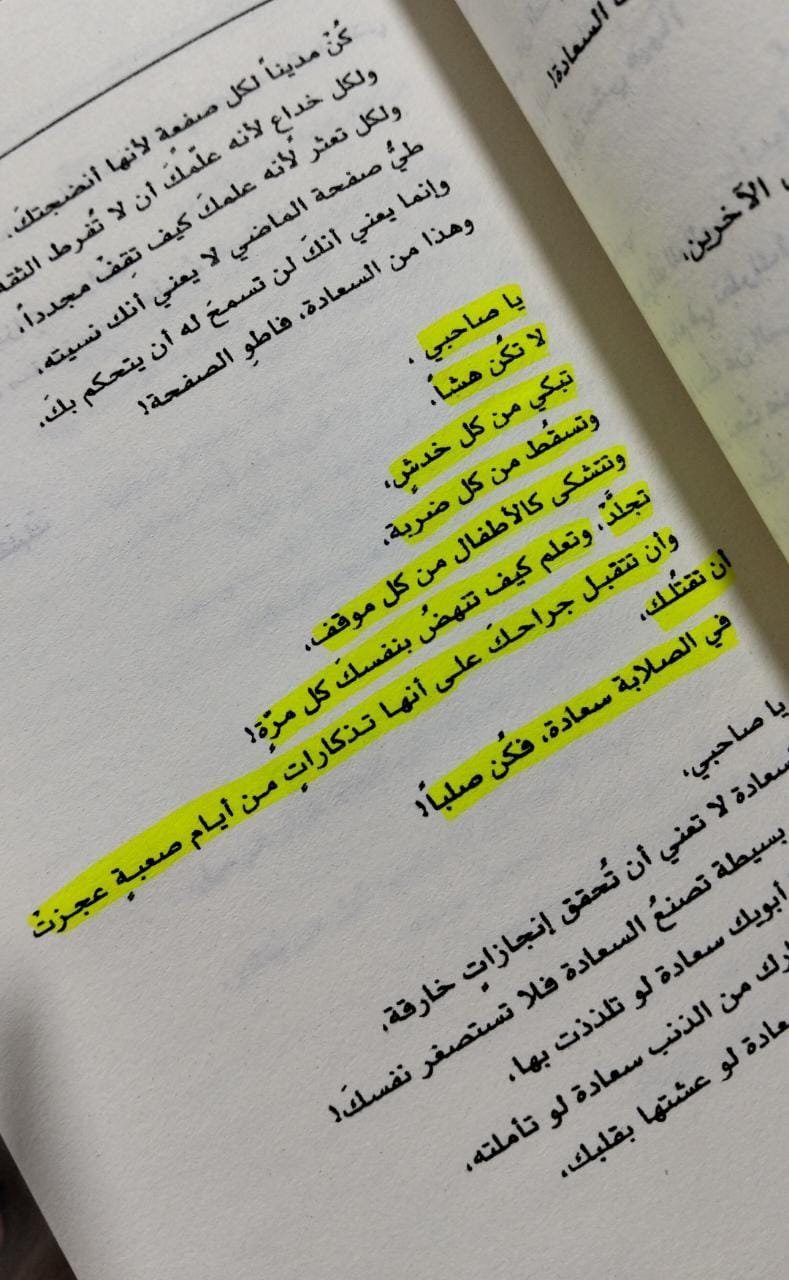 كُنْ مديناً لكل صفعة لأنها أنضجتكَ.
ولكل خداعٍ لأنه علّمكَ أن لا تُفرط الثقة
ولكل تعثر لأنه علمكَ كيف تقِفُ مجدداً،
طيُّ صفحة الماضي لا يعني أنك نسيته،
وإنما يعني أنكَ لن تسمحَ له أن يتحكم بكَ،
وهذا من السعادة، فاطوِ الصفحة!
يا صاحبي،
لا تكُن هشاً،
تبكي من كل خدشٍ،
وتسقُط من كل ضربة،
وتتشكى كالأطفال من كل موقف،
تجلَّدْ، وتعلم كيف تنهضُ بنفسكَ كل مرّةٍ!
وأن تتقبل جراحكَ على أنها تذكاراتٍ من أيام صعبةٍ عجزتْ
أن تقتُلك،
في الصلابة سعادة، فكُن صلباً!
يا صاحبي،
سعادة لا تعني أن تُحقق إنجازاتٍ خارقة،
بسيطة تصنعُ السعادة فلا تستصغر نفسكَ!
أبويك سعادة لو تلذذت بها،
من الذنب سعادة لو تأملته،
لو عشتها بقلبك،
السعادة!
الآخرين،